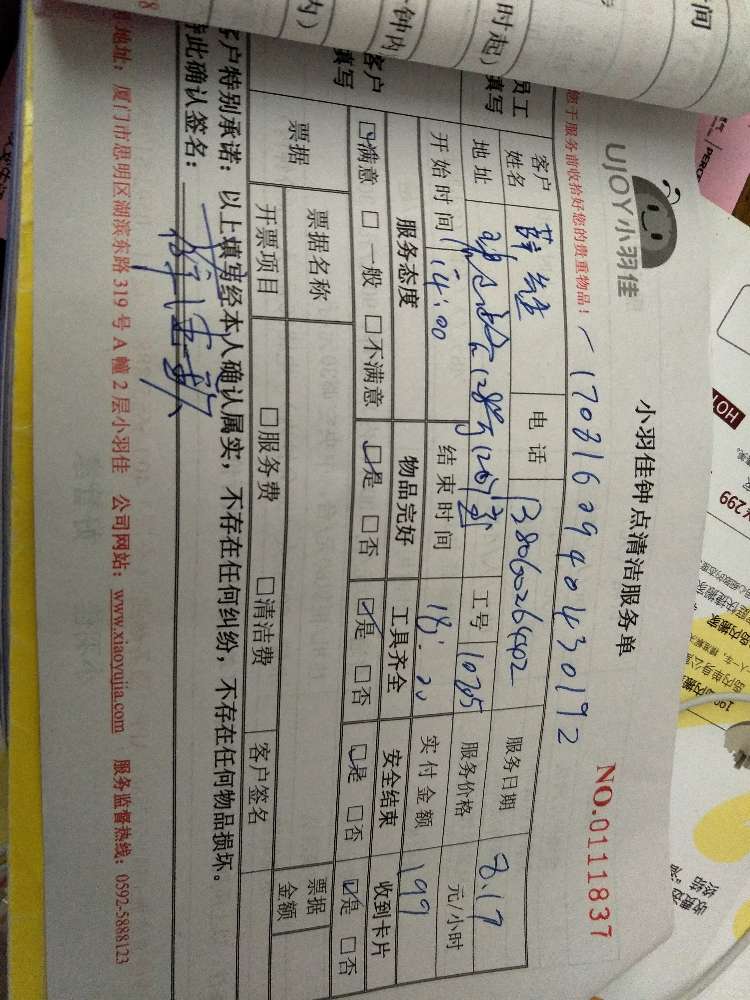 UJOY小羽佳
小羽佳钟点清洁服务单
NO.0111837
您于服务前收拾好您的贵重物品!
1708160940430192
员工
填写
客户
姓名
薛
电话
13806026442
服务日期
8.17
地址
128号1201室
工号
10785
服务价格
元/小时
开始时间
14:00
结束时间
18:20
实付金额
199
客户
填写
服务态度
物品完好
工具齐全
安全结束
收到卡片
满意 □一般 □不满意
是 □否
是 □否
是 □否
是 □否
票据
票据名称
票据
金额
开票项目
□服务费
□清洁费
客户签名
客户特别承诺:以上填写经本人确认属实,不存在任何纠纷,不存在任何物品损坏。
此确认签名:
地址:厦门市思明区湖滨东路319号A幢2层小羽佳 公司网站:www.xiaoyujia.com 服务监督热线:0592-5888123
时起)
钟内
内)
间
HOT
299